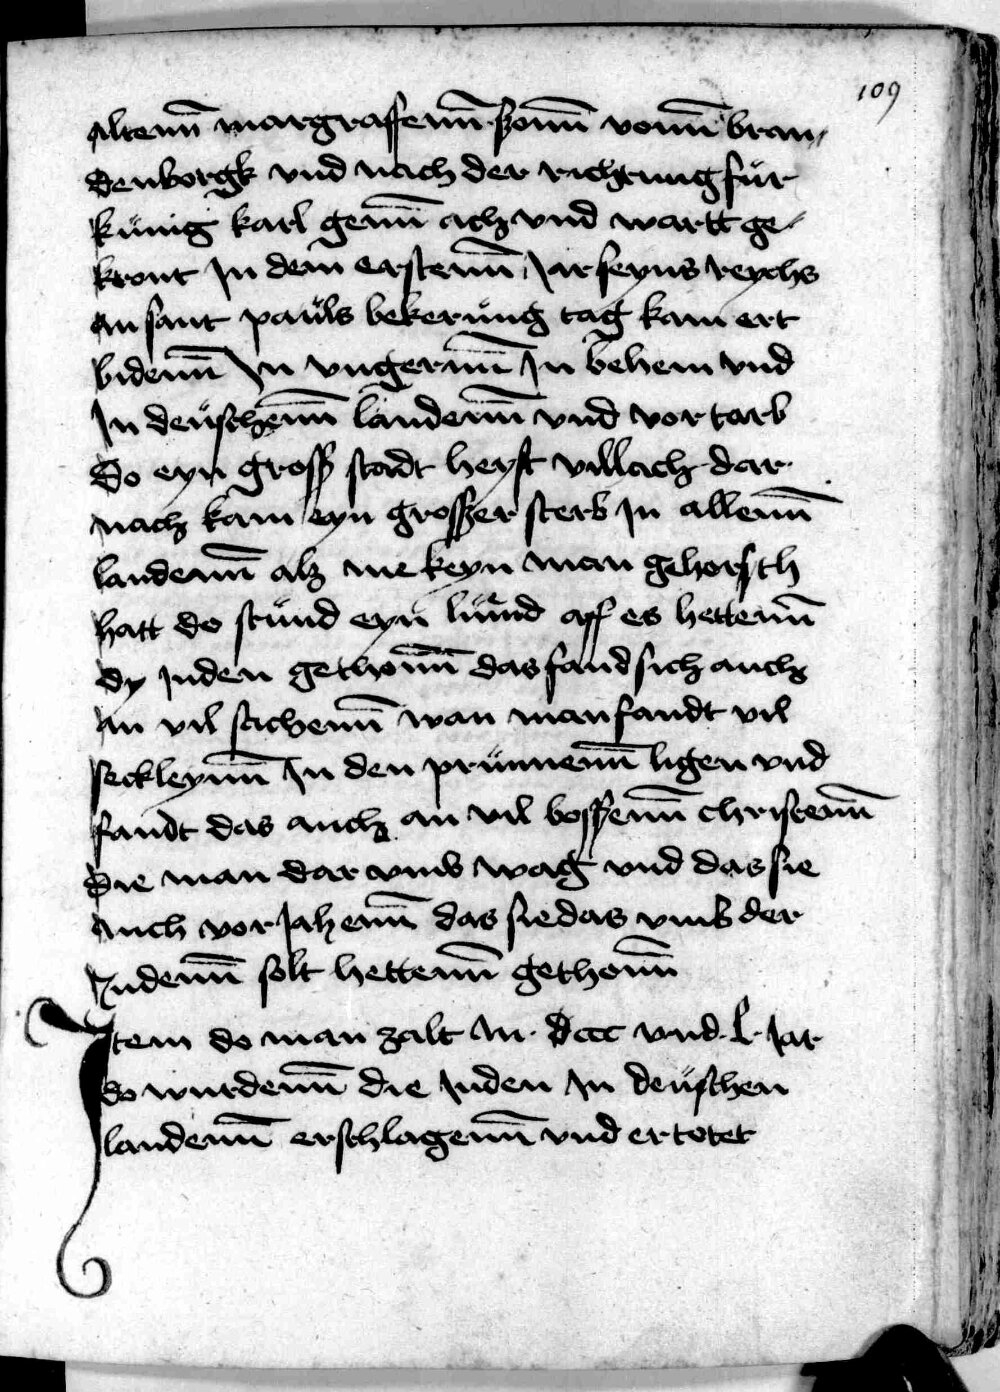 109
altenn margraffenn szonn vonn bran
denborgk vnd nach der richtung für
künig karl genn ach vnd wartt ge
kront In dem erstenn Jar seyns reychs
an sant pauls bekerüng tag kam ert
bidenn In vngernn In behem vnd
In deüschenn landenn vnd vortarb
do eyn gross stadt heyst villach dar
nach kam eyn grosser sterb In allenn
landenn alz nie keyn man gehorsth
hatt do stünd eyn lümd aff es hettenn
dy Juden gethonn das fand sich auch
an vil stichenn wan man fandt vil
seckleynn In den prünnenn ligen vnd
fandt das auch an vil bossenn christenn
die man dar vmb wag vnd das sie
auch vor Jahenn das sie das vmb der
Judenn solt hettenn gethonn
Item do man zalt M. dccc vnd .l. Jar
do wurdenn die Juden In deüschen
landenn erschlagenn vnd ertotet